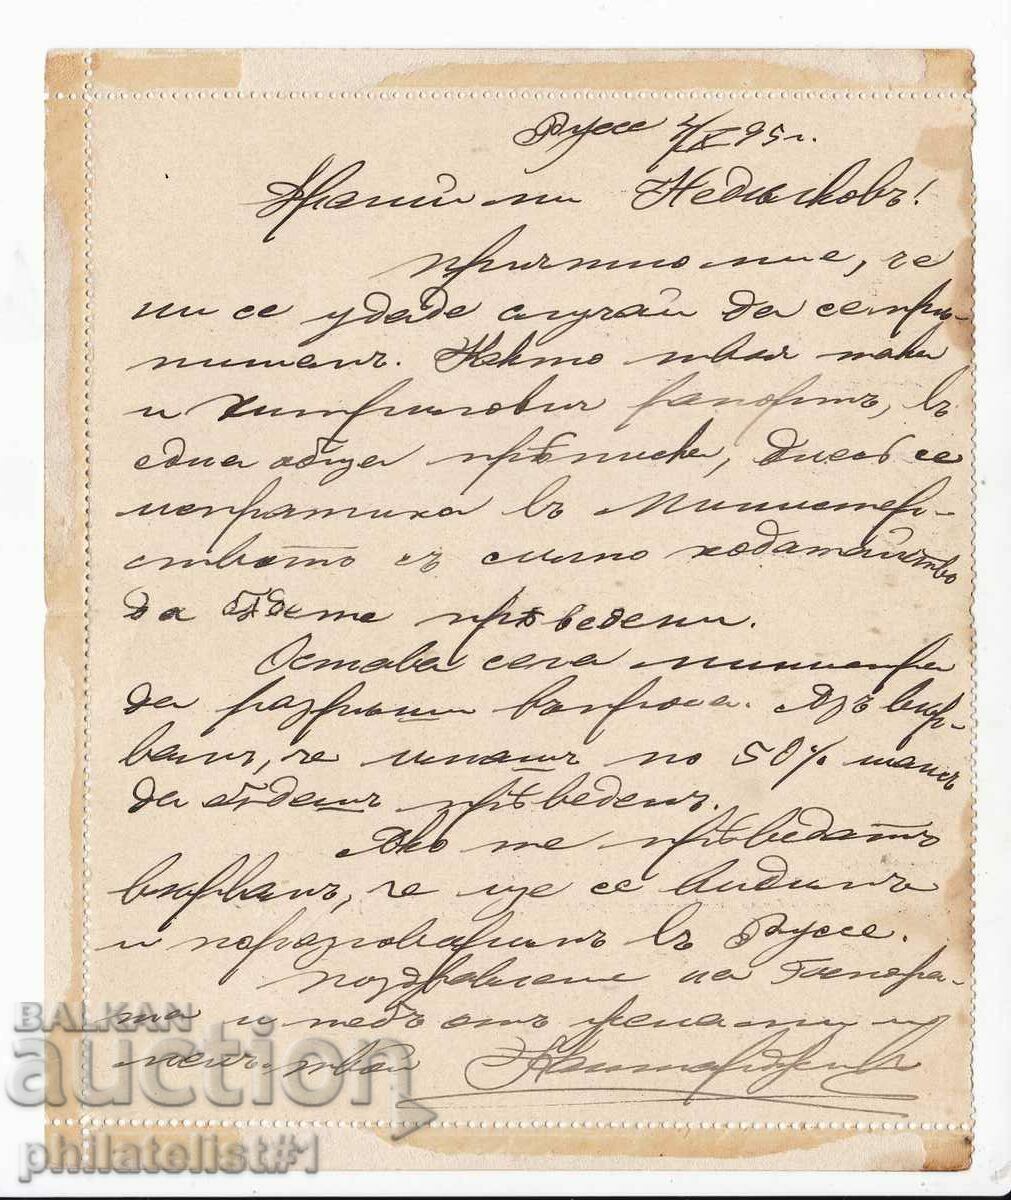 Руссе 4/IX 95 г.
ми Недѣлковъ!
Приятно ми е, че
ни се удаде случай да се при-
пишемъ. Както твоя така
и рапортъ, въ
една обща прѣписка, днесъ се
испратиха въ Министер-
ството съ силно ходатайство
да бѫдете прѣведени.
Остава сега министра
да разрѣши въпроса. Азъ вѣр-
вамъ, че имашъ по 50% шансъ
да бѫдешъ прѣведенъ.
Ако те прѣведатъ
вѣрвамъ, че ще се видимъ
и поразговоримъ въ Руссе.
Поздравление на Госпожа-
та и тебъ отъ жена ми и
менъ. твой
BALKAN
auction
philatelist#1